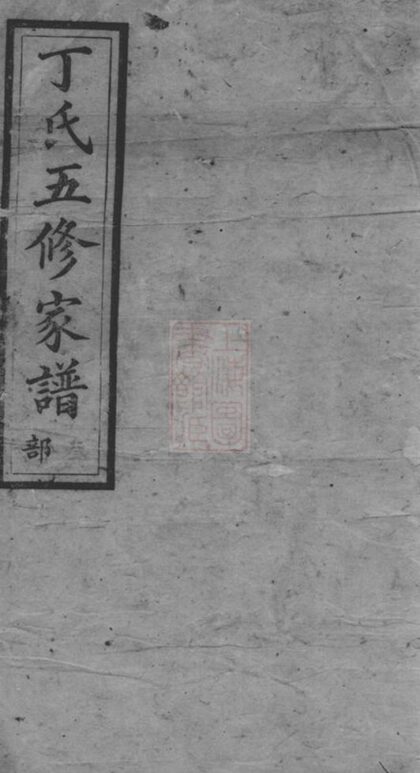 丁氏五修家譜
部
上海圖書館藏